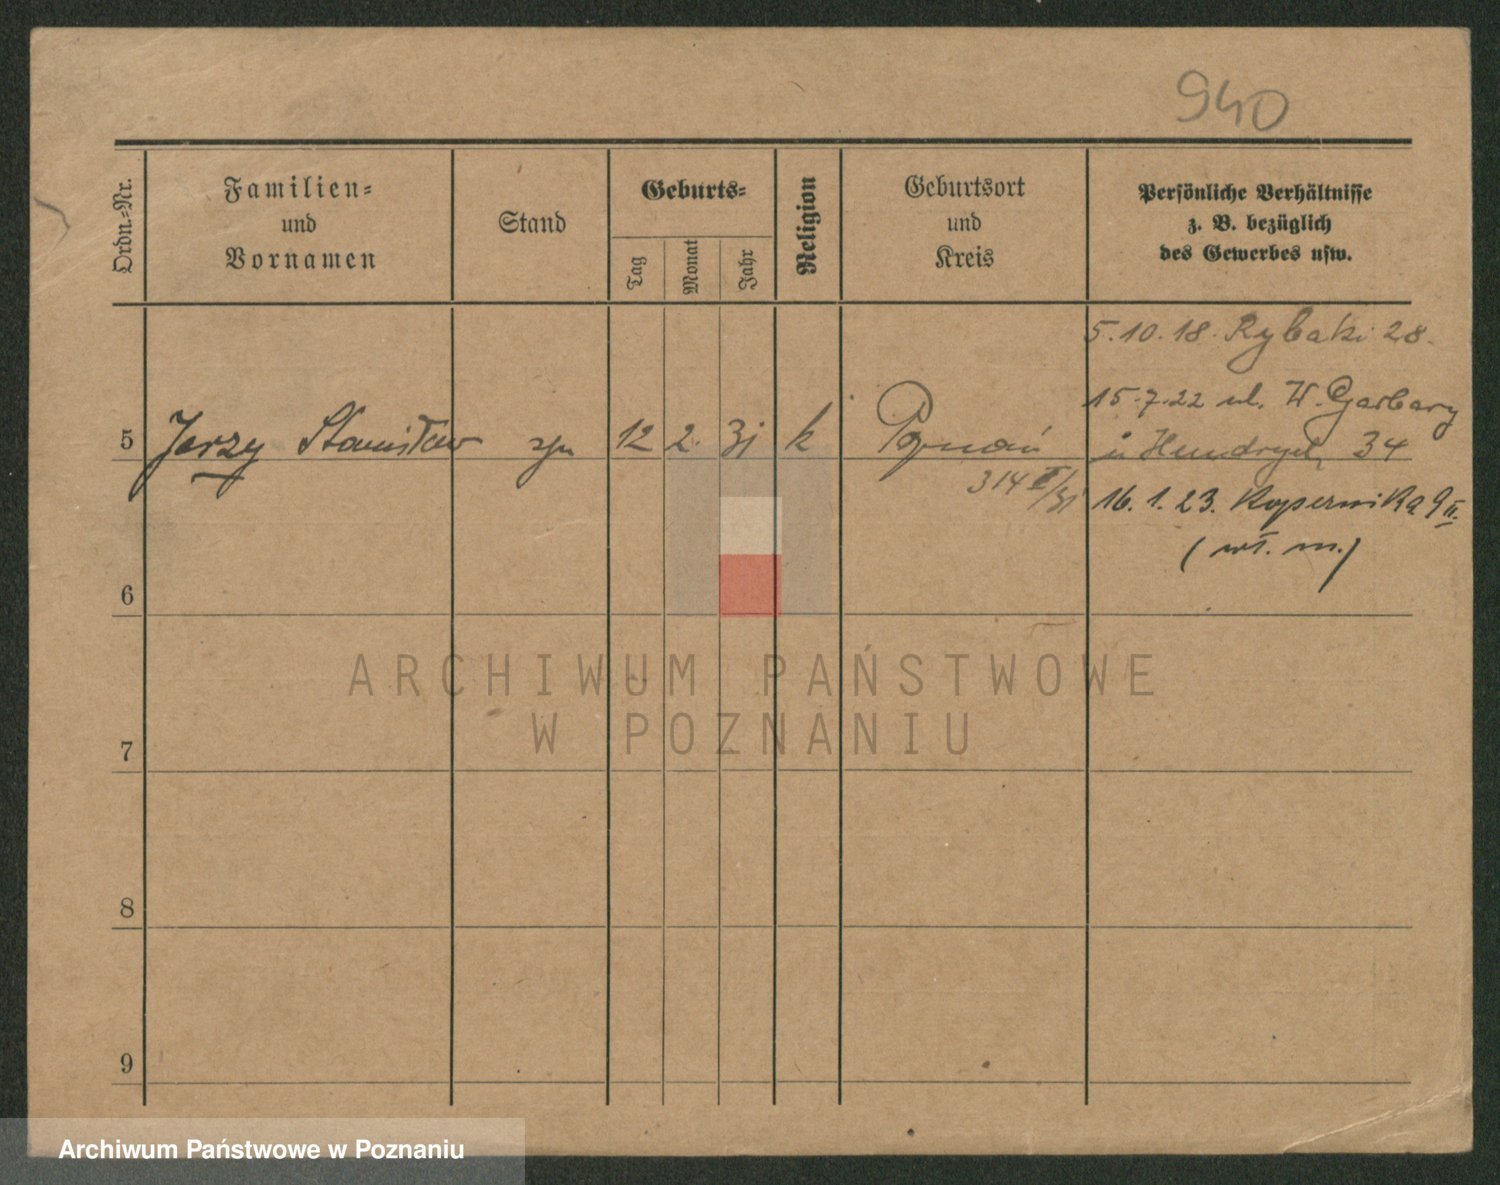 940
Ordn.-Nr.
Familien-
und
Vornamen
Stand
Geburts-
Tag
Monat
Jahr
Religion
Geburtsort
und
Kreis
Persönliche Verhältnisse
z. B. bezüglich
des Gewerbes usw.
5.10.18. Rybaki 28.
15.7.22 ul. W. Garbary
34
5 Jerzy Stanisław syn 12 2. 31 k Poznań
314 II/31
16. 1. 23. Kopernika 9 II.
(wł. m.)
6
7
8
9
ARCHIWUM PAŃSTWOWE
W POZNANIU
Archiwum Państwowe w Poznaniu